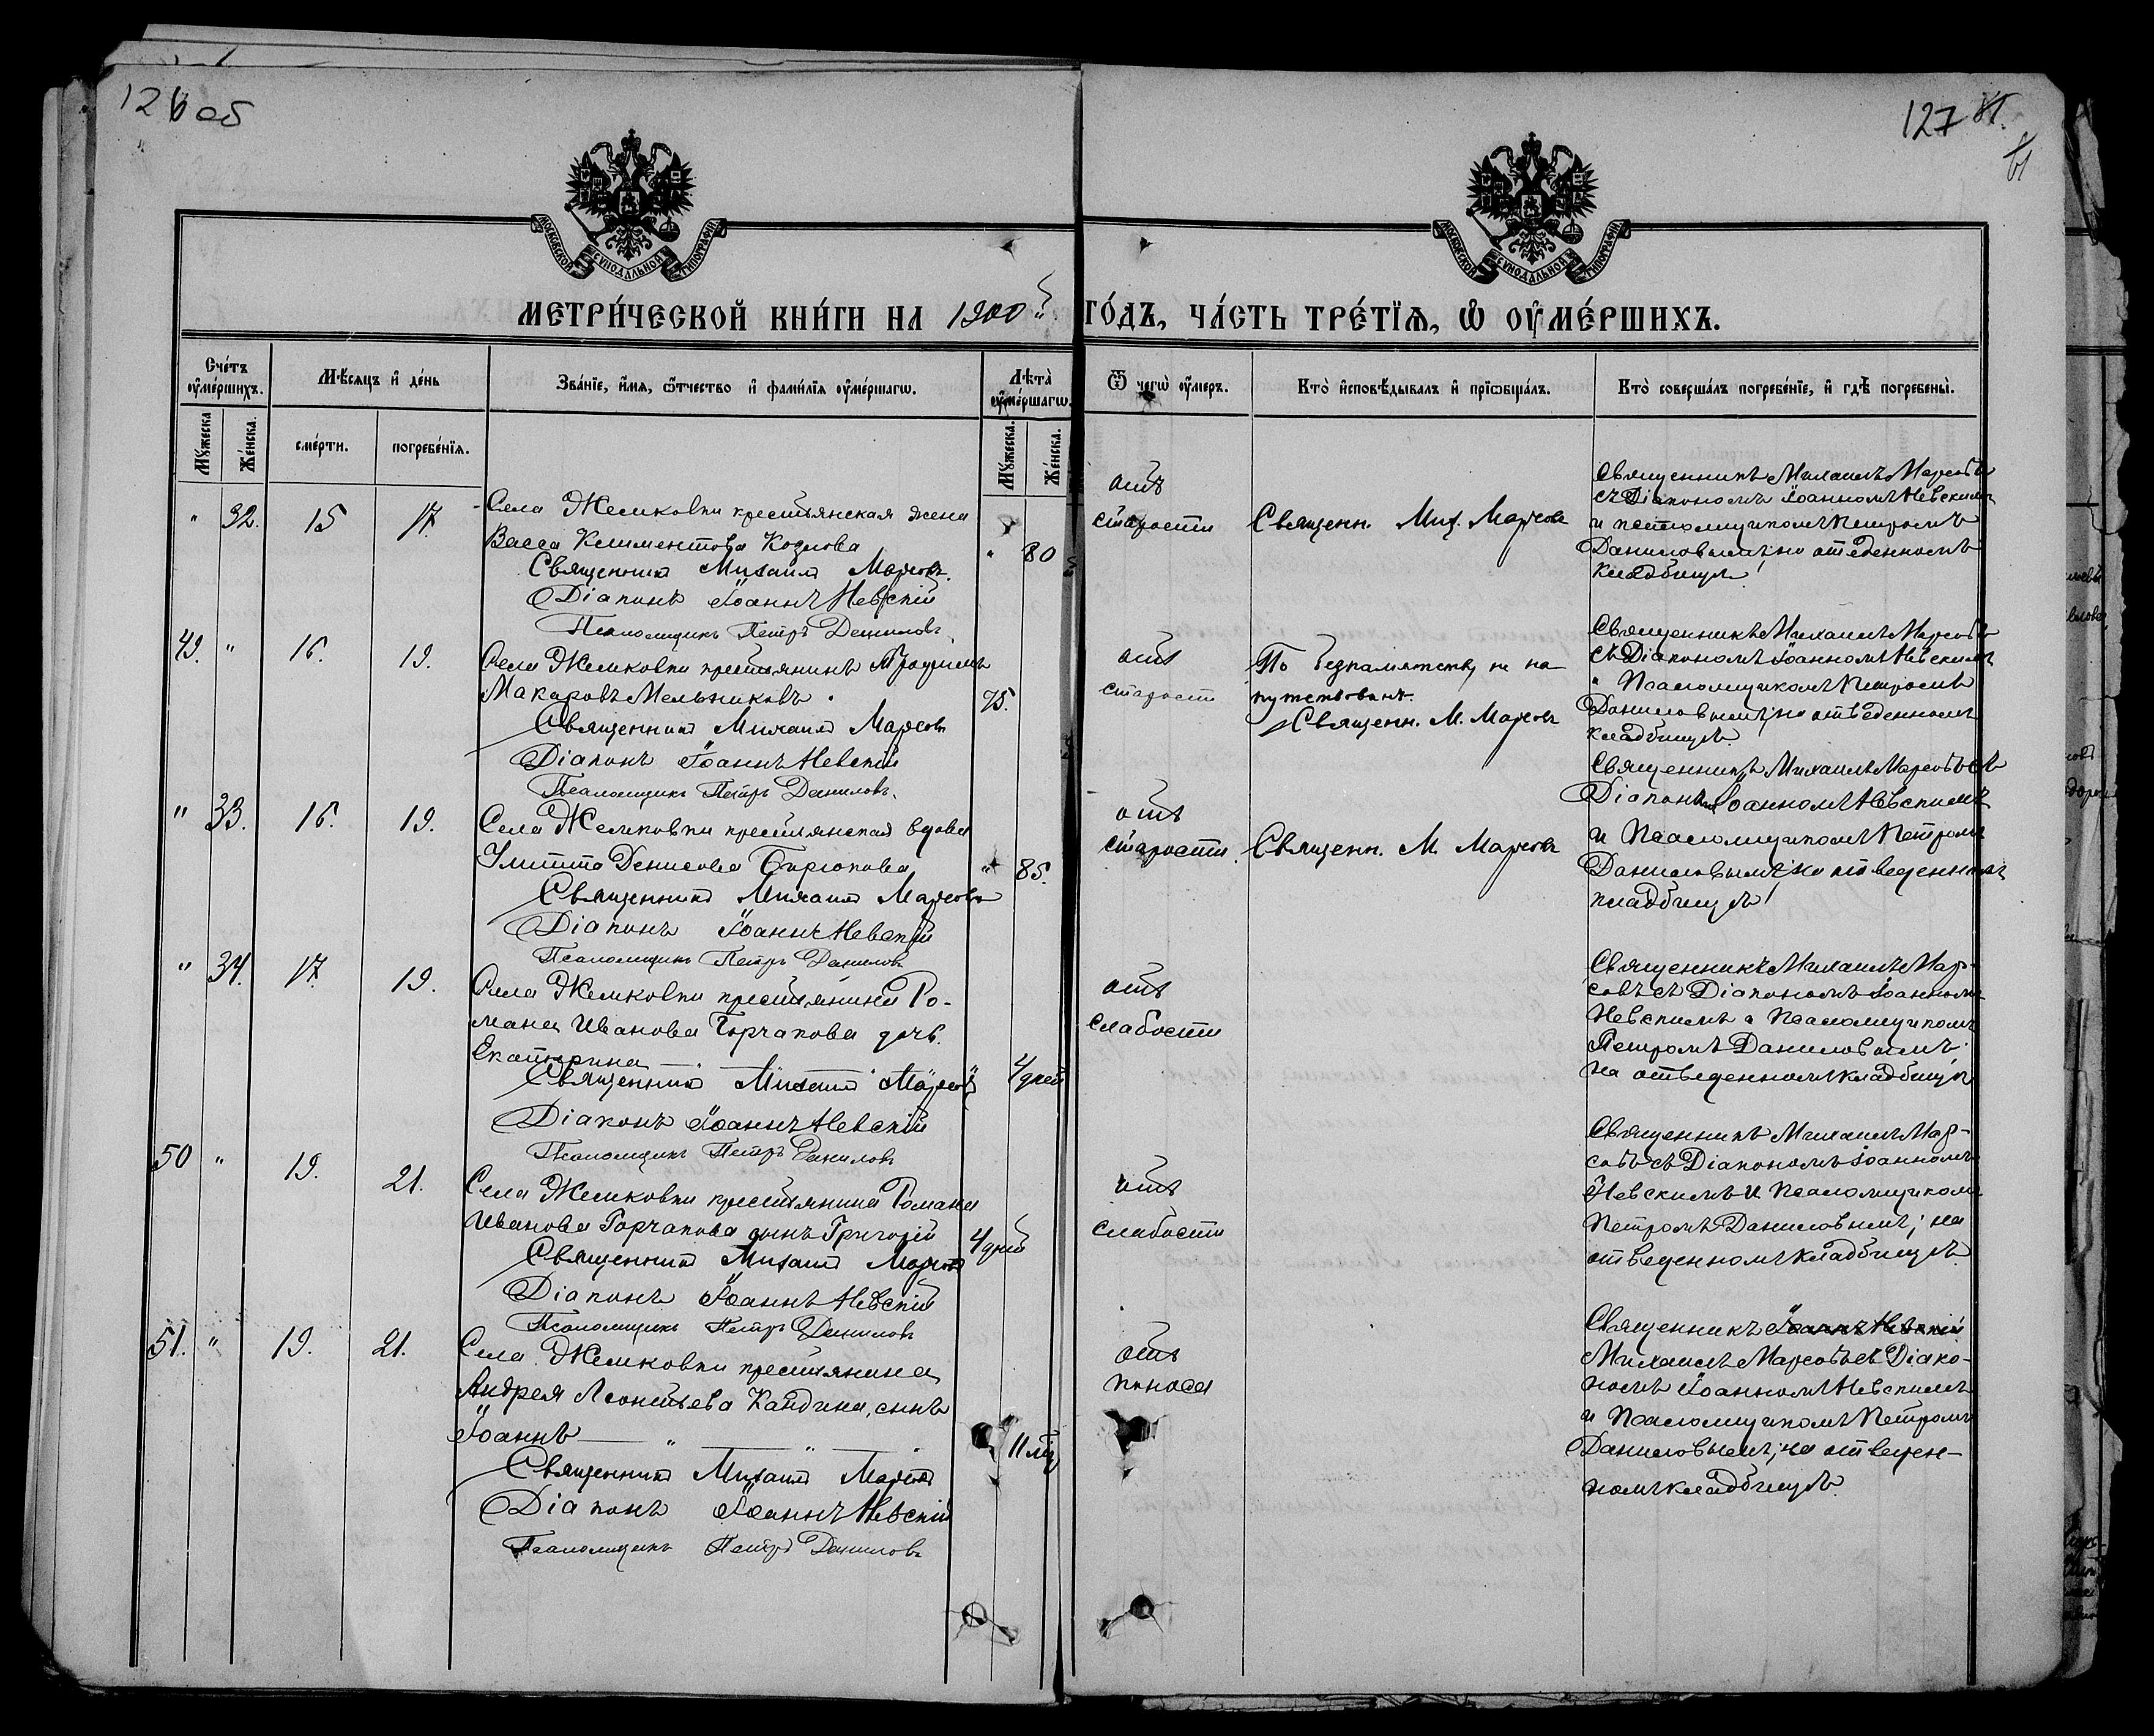 126 об
127
МОСКОВСКОЙ СѴНОДАЛЬНОЙ ТИПОГРАФІИ
МОСКОВСКОЙ СѴНОДАЛЬНОЙ ТИПОГРАФІИ
МЕТРИ́ЧЕСКОЙ КНИ́ГИ НА 1900й ГО́ДЪ, ЧА́СТЬ ТРЕ́ТІЯ, Ѡ ОУ҆МЕ́РШИХЪ.
Сче́тъ оу҆ме́ршихъ.
Мѣ́сяцъ и҆ де́нь
Зва́нїе, и҆́мя, ѻ҆́тчество и҆ фами́лїя оу҆ме́ршагѡ.
Лѣта̀ оу҆ме́ршагѡ.
Ѿ чегѡ̀ оу҆́меръ.
Кто̀ и҆сповѣ́дывалъ и҆ прїѡбща́лъ.
Кто̀ соверша́лъ погребе́нїе, и҆ гдѣ̀ погребены̀.
Мꙋ́жеска.
Же́нска.
сме́рти.
погребе́нїя.
Мꙋ́жеска.
Же́нска.
" 32. 15 17.
Села Жемковки крестьянская жена
Васса Климентова Козлова
" 80
Священникъ Михаилъ Марсовъ.
Діаконъ Іоаннъ Невскій
Псаломщикъ Петръ Даниловъ
отъ
старости
Священн. Мих. Марсовъ
Священникъ Михаилъ Марсовъ
съ Діакономъ Іоанномъ Невскимъ
и псаломщикомъ Петромъ
Даниловымъ; на отведенномъ
кладбищѣ
49. " 16. 19.
Села Жемковки крестьянинъ
Макаровъ Мельниковъ
75.
Священникъ Михаилъ Марсовъ
Діаконъ Іоаннъ Невскій
Псаломщикъ Петръ Даниловъ.
отъ
старости
По безпамятству не на-
путствованъ.
Священн. М. Марсовъ
Священникъ Михаилъ Марсовъ
съ Діакономъ Іоанномъ Невскимъ
и Псаломщикомъ Петромъ
Даниловымъ; на отведенномъ
кладбищѣ.
" 33. 16. 19.
Села Жемковки крестьянская вдова
Улитта Денисова Бирюкова
" 85.
Священникъ Михаилъ Марсовъ
Діаконъ Іоаннъ Невскій
Псаломщикъ Петръ Даниловъ
отъ
старости.
Священн. М. Марсовъ
Священникъ Михаилъ Марсовъ съ
Діакономъ Іоанномъ Невскимъ
и Псаломщикомъ Петромъ
Даниловымъ; на отведенномъ
кладбищѣ
" 34. 17. 19.
Села Жемковки крестьянина Ро-
мана Иванова Горчакова дочь
Екатерина
4 дней
Священникъ Михаилъ Марсовъ
Діаконъ Іоаннъ Невскій
Псаломщикъ Петръ Даниловъ
отъ
слабости
Священникъ Михаилъ Мар-
совъ съ Діакономъ Іоанномъ
Невскимъ и Псаломщикомъ
Петромъ Даниловымъ;
на отведенномъ кладбищѣ
50 " 19. 21.
Села Жемковки крестьянина Романа
Иванова Горчакова сынъ Григорій
4 дней
Священникъ Михаилъ Марсовъ
Діаконъ Іоаннъ Невскій
Псаломщикъ Петръ Даниловъ
отъ
слабости
Священникъ Михаилъ Мар-
совъ съ Діакономъ Іоанномъ
Невскимъ и Псаломщикомъ
Петромъ Даниловымъ; на
отведенномъ кладбищѣ.
51. " 19. 21.
Села Жемковки крестьянина
Андрея Леонтьева Кандина, сынъ
Іоаннъ
11 мц
Священникъ Михаилъ Марсовъ
Діаконъ Іоаннъ Невскій
Псаломщикъ Петръ Даниловъ
отъ
поноса
Священникъ Іоаннъ Невскій
Михаилъ Марсовъ съ Діако-
номъ Іоанномъ Невскимъ
и Псаломщикомъ Петромъ
Даниловымъ; на отведен-
номъ кладбищѣ.